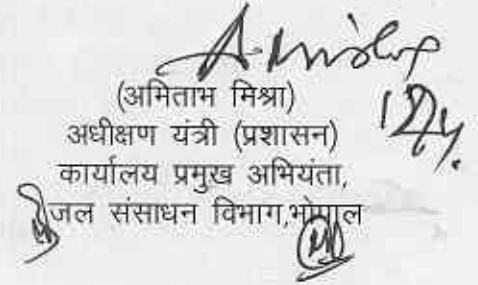 (अमिताभ मिश्रा)
अधीक्षण यंत्री (प्रशासन)
कार्यालय प्रमुख अभियंता,
जल संसाधन विभाग,भोपाल